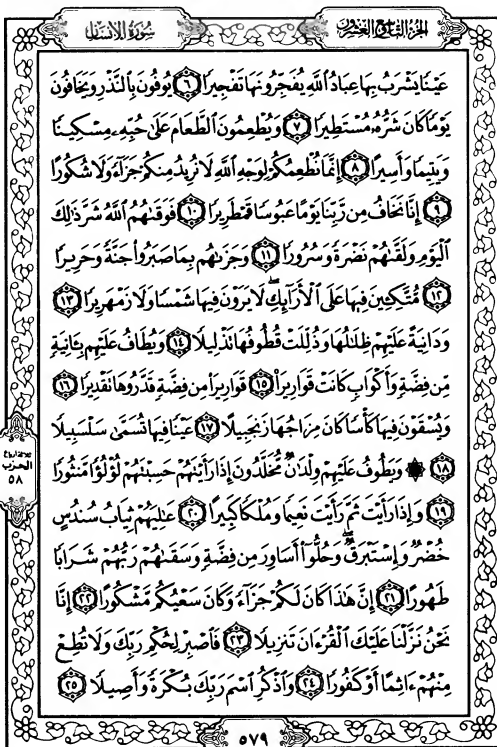 الجزء التاسع والعشرون
سورة الإنسان
عَيْنًا يَشْرَبُ بِهَا عِبَادُ ٱللَّهِ يُفَجِّرُونَهَا تَفْجِيرًا ٦ يُوفُونَ بِٱلنَّذْرِ وَيَخَافُونَ
يَوْمًا كَانَ شَرُّهُۥ مُسْتَطِيرًا ٧ وَيُطْعِمُونَ ٱلطَّعَامَ عَلَىٰ حُبِّهِۦ مِسْكِينًا
وَيَتِيمًا وَأَسِيرًا ٨ إِنَّمَا نُطْعِمُكُمْ لِوَجْهِ ٱللَّهِ لَا نُرِيدُ مِنكُمْ جَزَآءً وَلَا شُكُورًا
٩ إِنَّا نَخَافُ مِن رَّبِّنَا يَوْمًا عَبُوسًا قَمْطَرِيرًا ١٠ فَوَقَىٰهُمُ ٱللَّهُ شَرَّ ذَٰلِكَ
ٱلْيَوْمِ وَلَقَّىٰهُمْ نَضْرَةً وَسُرُورًا ١١ وَجَزَىٰهُم بِمَا صَبَرُوا۟ جَنَّةً وَحَرِيرًا
١٢ مُّتَّكِـِٔينَ فِيهَا عَلَى ٱلْأَرَآئِكِ ۖ لَا يَرَوْنَ فِيهَا شَمْسًا وَلَا زَمْهَرِيرًا ١٣
وَدَانِيَةً عَلَيْهِمْ ظِلَٰلُهَا وَذُلِّلَتْ قُطُوفُهَا تَذْلِيلًا ١٤ وَيُطَافُ عَلَيْهِم بِـَٔانِيَةٍ
مِّن فِضَّةٍ وَأَكْوَابٍ كَانَتْ قَوَارِيرَا۠ ١٥ قَوَارِيرَا۟ مِن فِضَّةٍ قَدَّرُوهَا تَقْدِيرًا ١٦
وَيُسْقَوْنَ فِيهَا كَأْسًا كَانَ مِزَاجُهَا زَنجَبِيلًا ١٧ عَيْنًا فِيهَا تُسَمَّىٰ سَلْسَبِيلًا
١٨ ۞ وَيَطُوفُ عَلَيْهِمْ وِلْدَٰنٌ مُّخَلَّدُونَ إِذَا رَأَيْتَهُمْ حَسِبْتَهُمْ لُؤْلُؤًا مَّنثُورًا
١٩ وَإِذَا رَأَيْتَ ثَمَّ رَأَيْتَ نَعِيمًا وَمُلْكًا كَبِيرًا ٢٠ عَٰلِيَهُمْ ثِيَابُ سُندُسٍ
خُضْرٌ وَإِسْتَبْرَقٌ ۖ وَحُلُّوٓا۟ أَسَاوِرَ مِن فِضَّةٍ وَسَقَىٰهُمْ رَبُّهُمْ شَرَابًا
طَهُورًا ٢١ إِنَّ هَٰذَا كَانَ لَكُمْ جَزَآءً وَكَانَ سَعْيُكُم مَّشْكُورًا ٢٢ إِنَّا
نَحْنُ نَزَّلْنَا عَلَيْكَ ٱلْقُرْءَانَ تَنزِيلًا ٢٣ فَٱصْبِرْ لِحُكْمِ رَبِّكَ وَلَا تُطِعْ
مِنْهُمْ ءَاثِمًا أَوْ كَفُورًا ٢٤ وَٱذْكُرِ ٱسْمَ رَبِّكَ بُكْرَةً وَأَصِيلًا ٢٥
الحزب
٥٨
٥٧٩